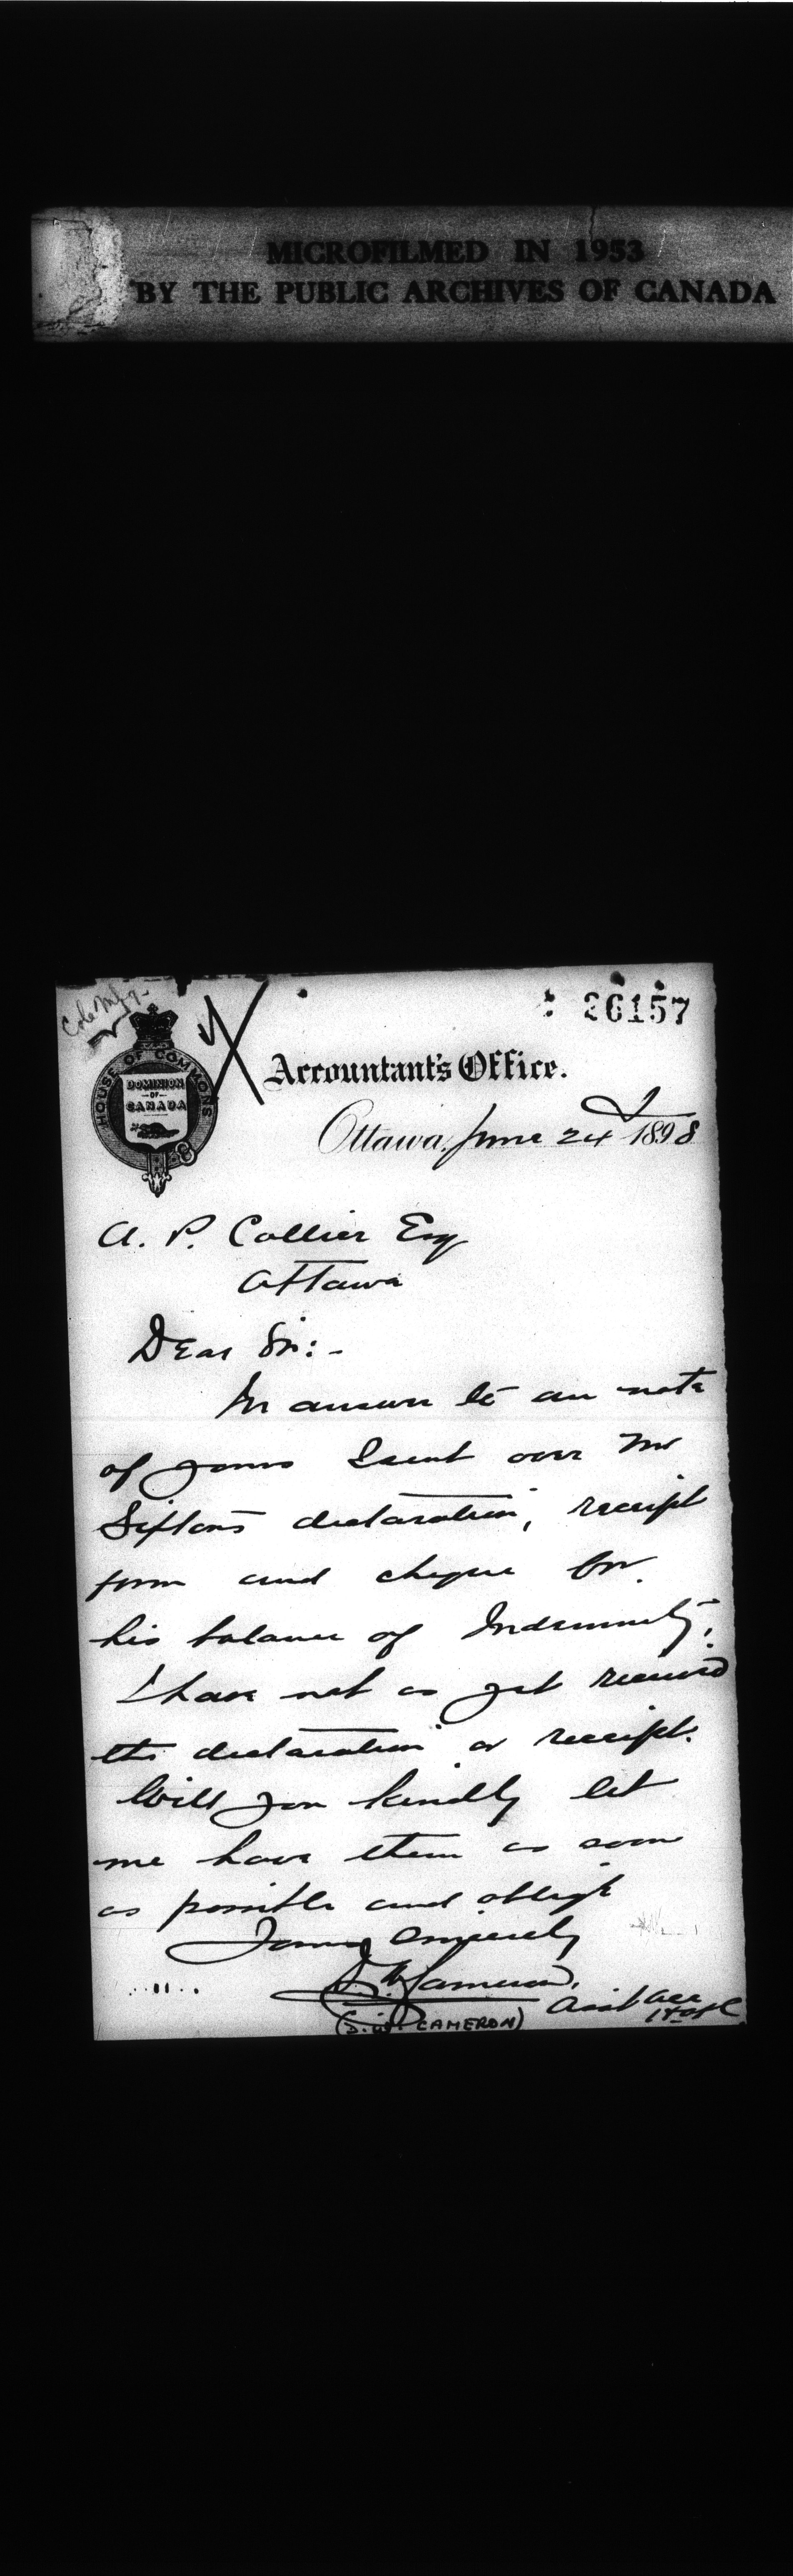 MICROFILMED IN 1953
BY THE PUBLIC ARCHIVES OF CANADA
26157
HOUSE OF COMMONS
DOMINION
OF
CANADA
Accountant's Office.
Ottawa, June 24 1898
A. P. Collier Esq
Ottawa
Dear Sir:-
In answer to a note
of yours I sent over Mr
Sifton's declaration, receipt
form and cheque for
his balance of Indemnity.
I have not as yet received
the declaration or receipt.
Will you kindly let
me have them as soon
as possible and oblige
Yours Sincerely
D. W. Cameron.
(D. W. CAMERON)
Asst Acc
H of C